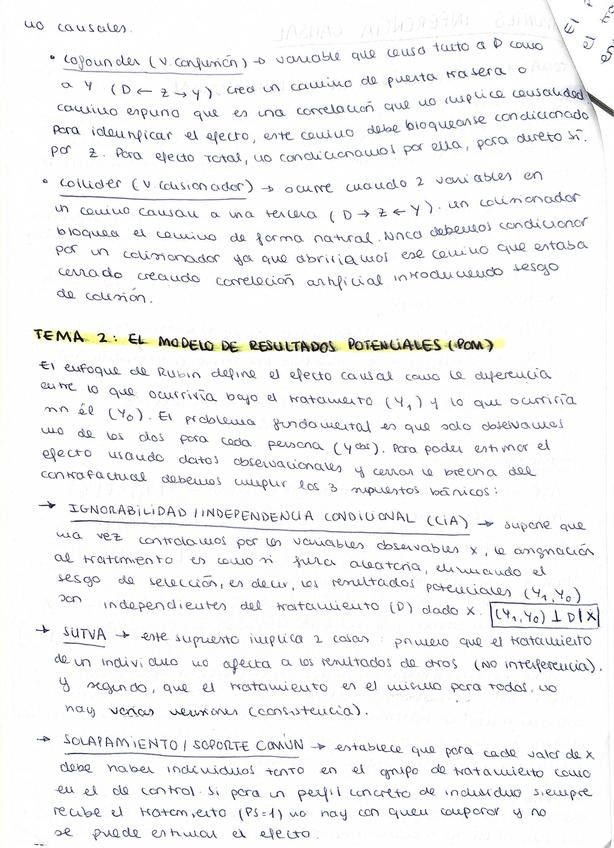 no causales.
• cofounder (v. confusión) → variable que causa tanto a D como
a Y (D ← Z → Y). crea un camino de puerta trasera o
camino espurio que es una correlación que no implica causalidad
Para identificar el efecto, este camino debe bloquearse condicionado
por Z. Para efecto total, no condicionamos por ella, para directo sí.
• collider (v. colisionador) → ocurre cuando 2 variables en
un camino causan a una tercera (D → Z ← Y). un colisionador
bloquea el camino de forma natural. Nnca debemos condicionar
por un colisionador ya que abriríamos ese camino que estaba
cerrado creando correlación artificial introduciendo sesgo
de colisión.
TEMA 2: EL MODELO DE RESULTADOS POTENCIALES (POM)
El enfoque de Rubin define el efecto causal como la diferencia
entre lo que ocurriría bajo el tratamiento (Y₁) y lo que ocurriría
sin él (Y₀). El problema fundamental es que solo observamos
uno de los dos para cada persona (Yobs). Para poder estimar el
efecto usando datos observacionales y cerrar la brecha del
contrafactual debemos cumplir los 3 supuestos básicos:
→ IGNORABILIDAD / INDEPENDENCIA CONDICIONAL (CIA) → supone que
una vez controlamos por las variables observables X, la asignación
al tratamiento es como si fuera aleatoria, eliminando el
sesgo de selección, es decir, los resultados potenciales (Y₁, Y₀)
son independientes del tratamiento (D) dado X. (Y₁, Y₀) ⊥ D | X
→ SUTVA → este supuesto implica 2 cosas: primero que el tratamiento
de un individuo no afecta a los resultados de otros (NO interferencia).
Y segundo, que el tratamiento es el mismo para todos, no
hay varias versiones (consistencia).
→ SOLAPAMIENTO / SOPORTE COMÚN → establece que para cada valor de X
debe haber individuos tanto en el grupo de tratamiento como
en el de control. Si para un perfil concreto de individuo siempre
recibe el tratamiento (PS=1) no hay con quien comparar y no
se puede estimar el efecto.